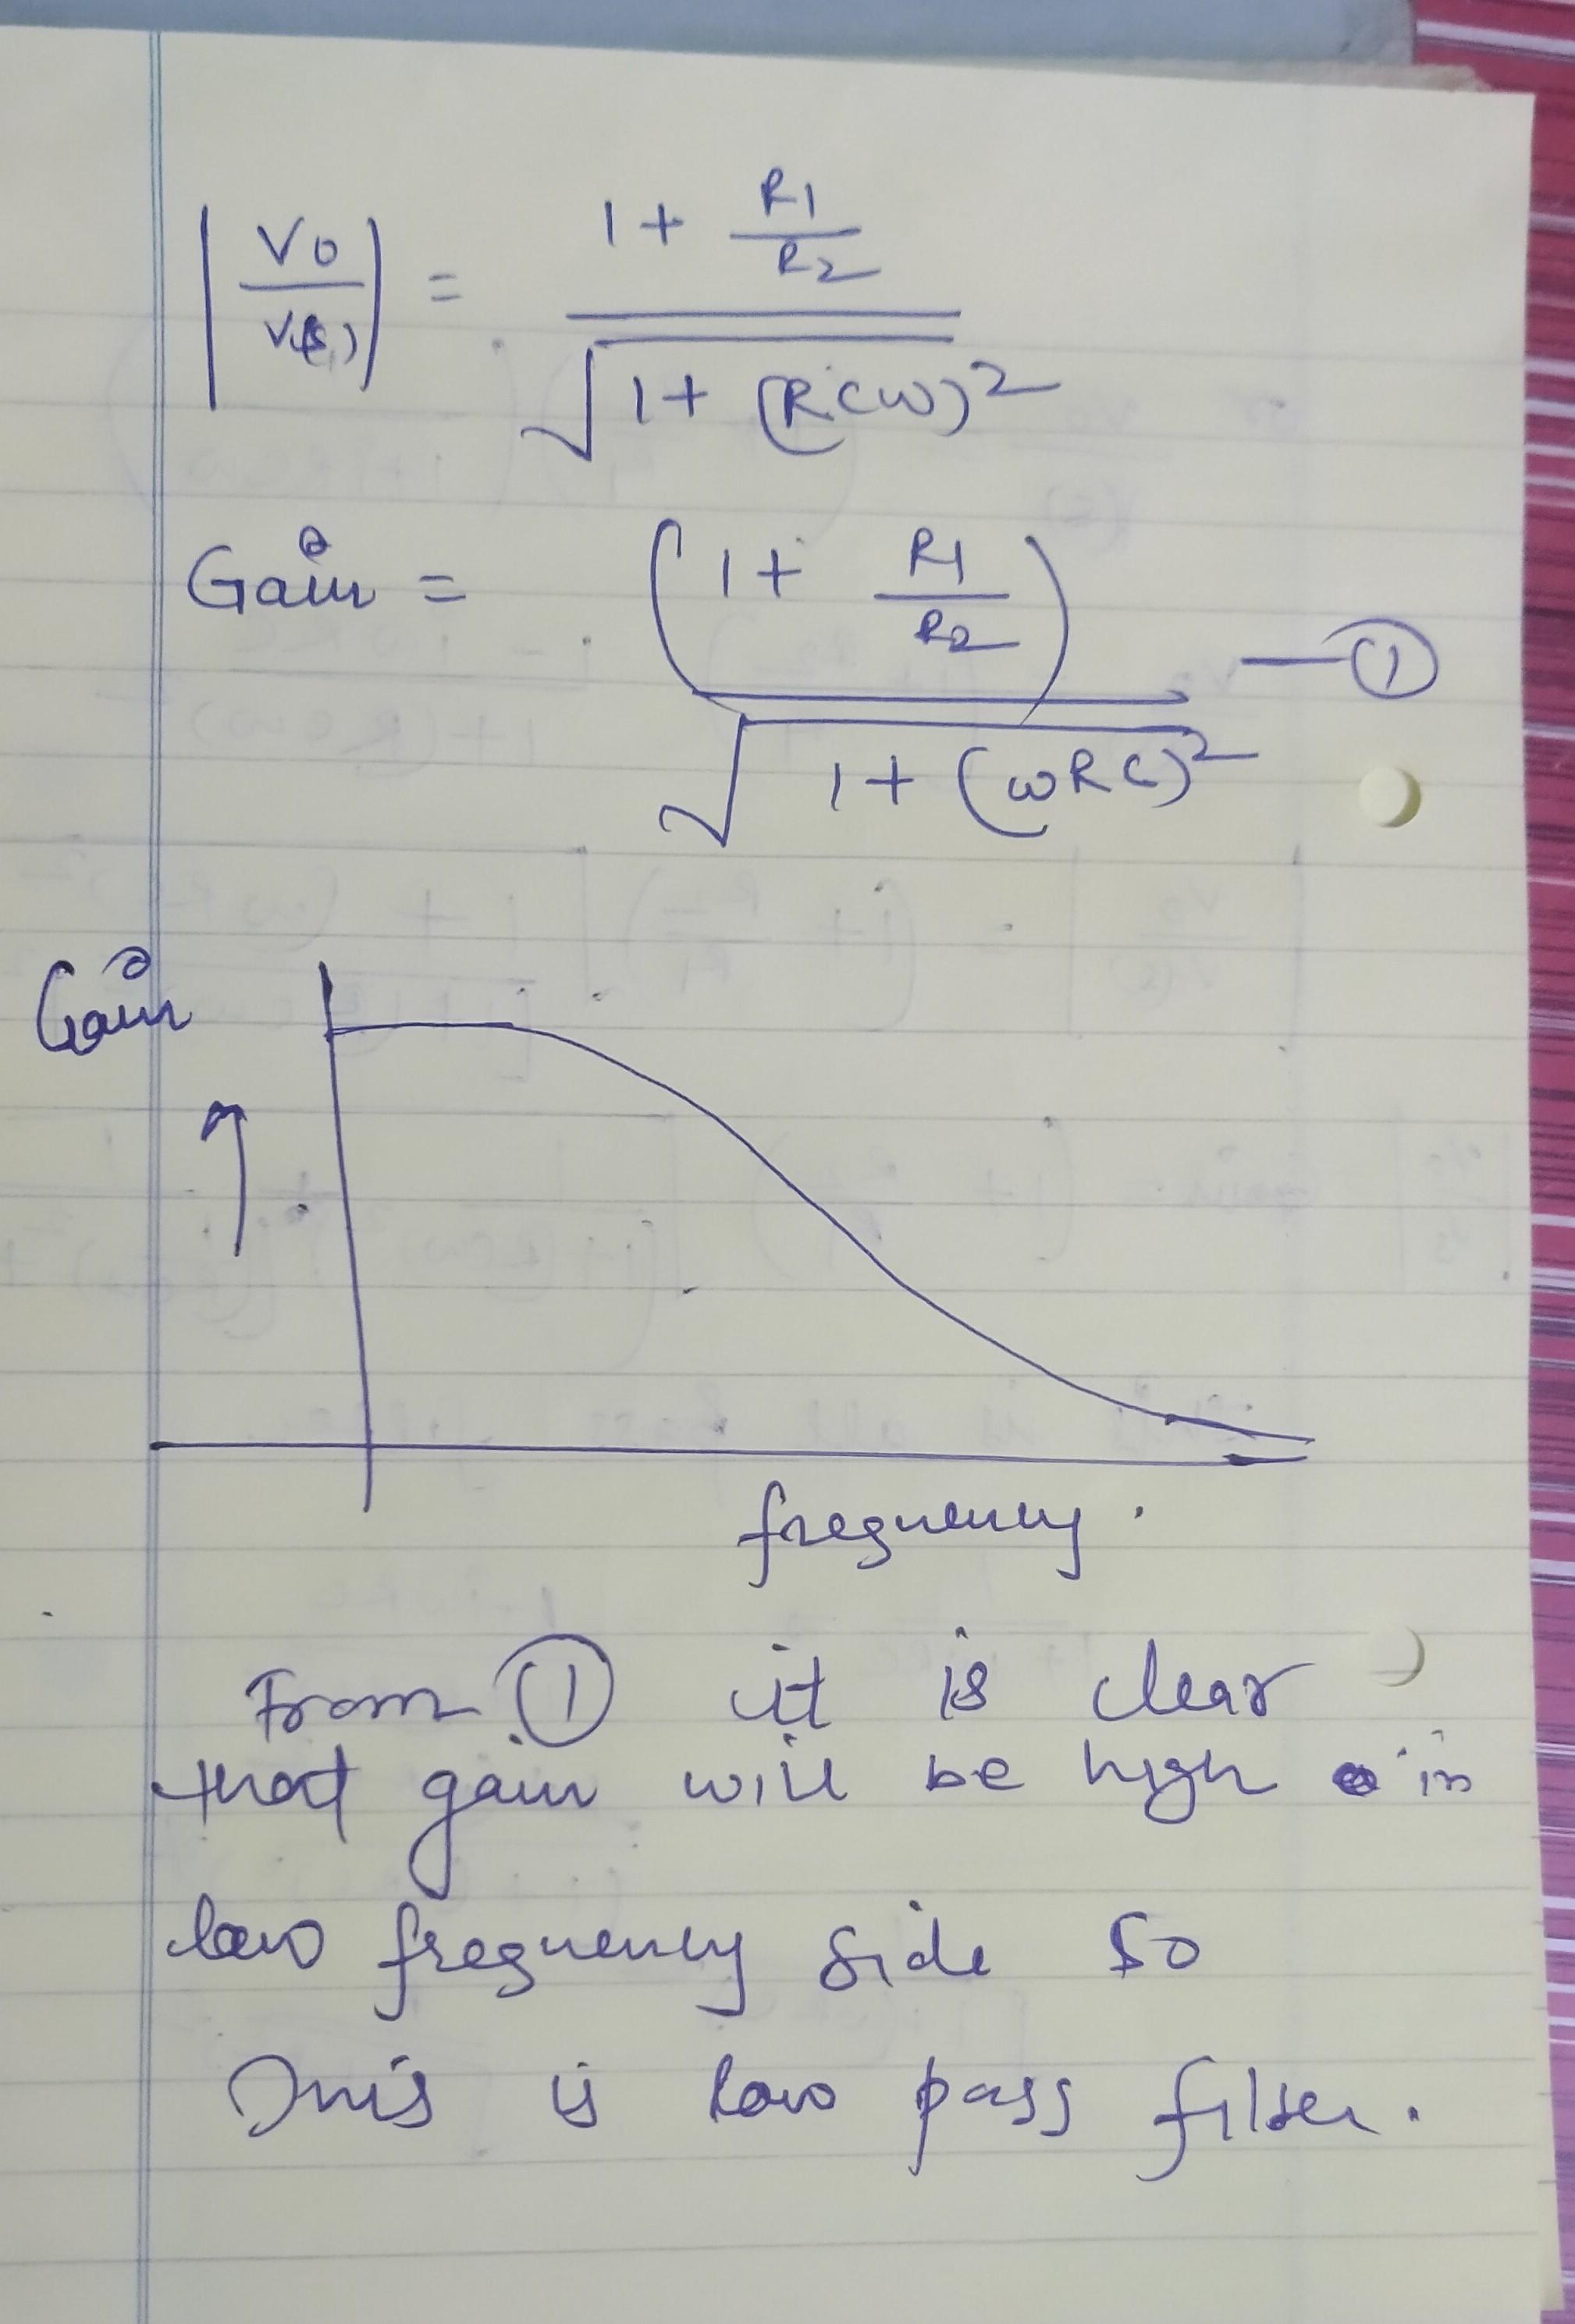 |Vo/V(s)| = (1 + R1/R2) / √(1 + (RCω)²)
Gain = (1 + R1/R2) / √(1 + (ωRC)²) — ①
Gain
frequency.
From ① it is clear
that gain will be high in
low frequency side so
This is low pass filter.